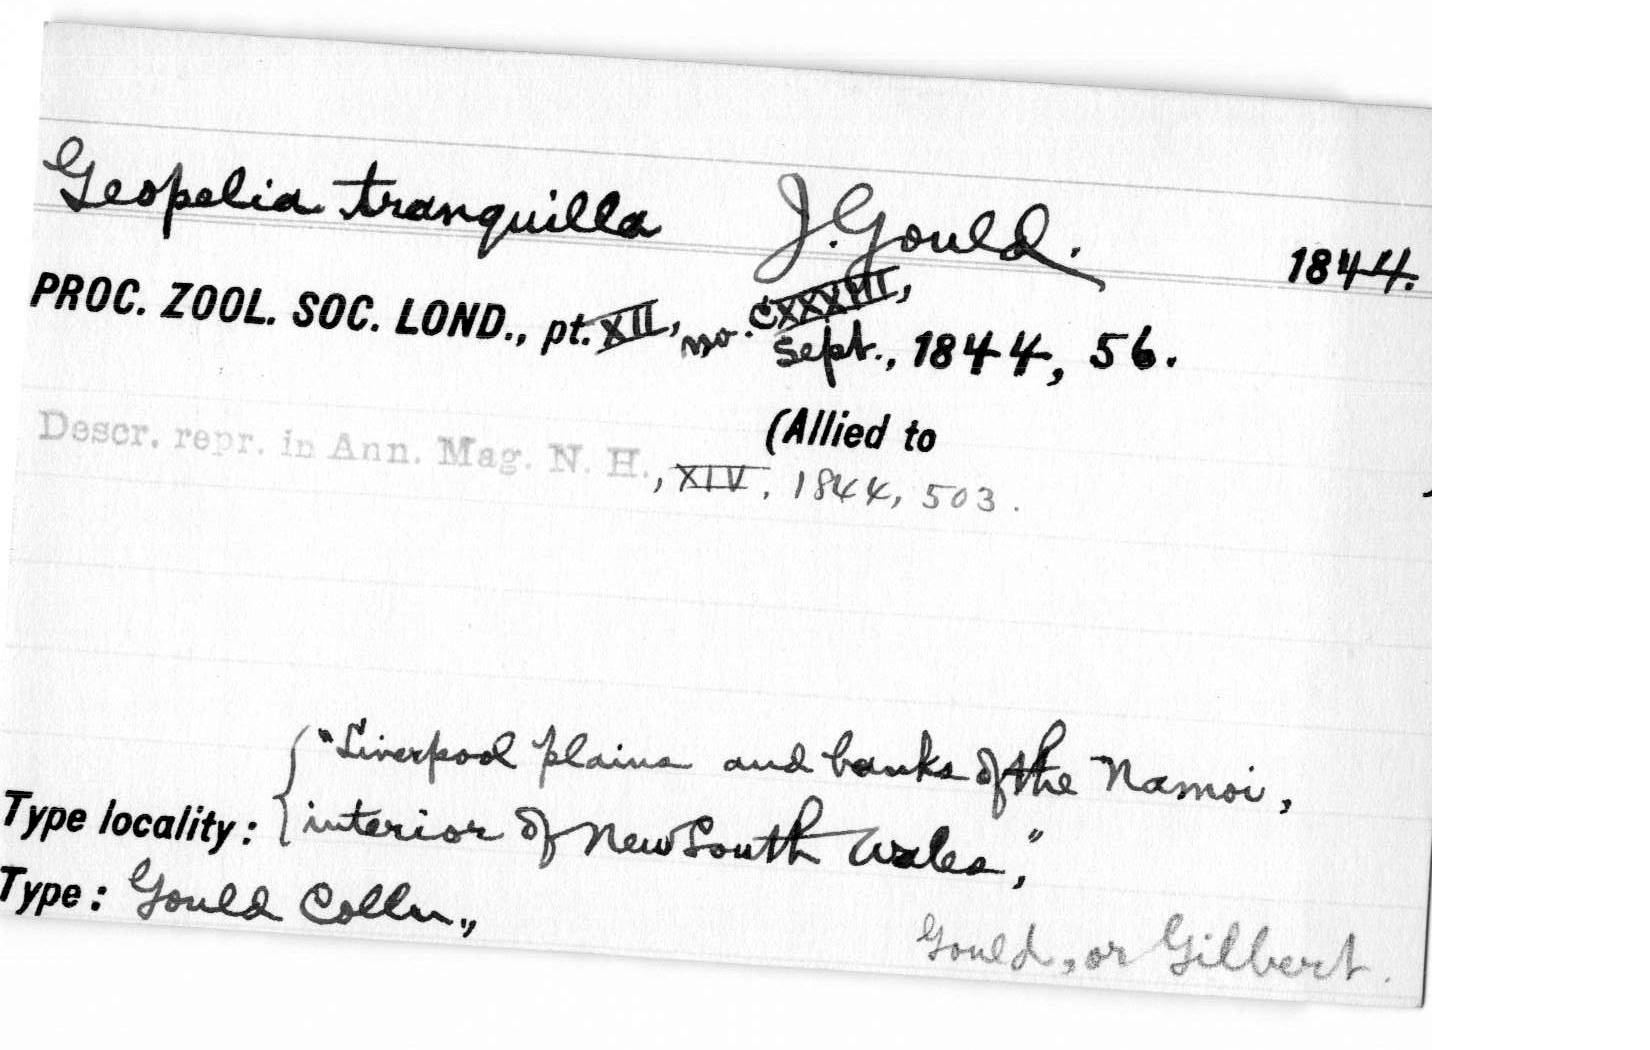 Geopelia tranquilla J. Gould. 1844.
PROC. ZOOL. SOC. LOND., pt. XII, no. CXXXVIII,
Sept., 1844, 56.
(Allied to
Descr. repr. in Ann. Mag. N. H., XIV, 1844, 503.
"Liverpool plains and banks of the Namoi,
Type locality: interior of New South Wales,"
Type: Gould Colln.,
Gould, or Gilbert.